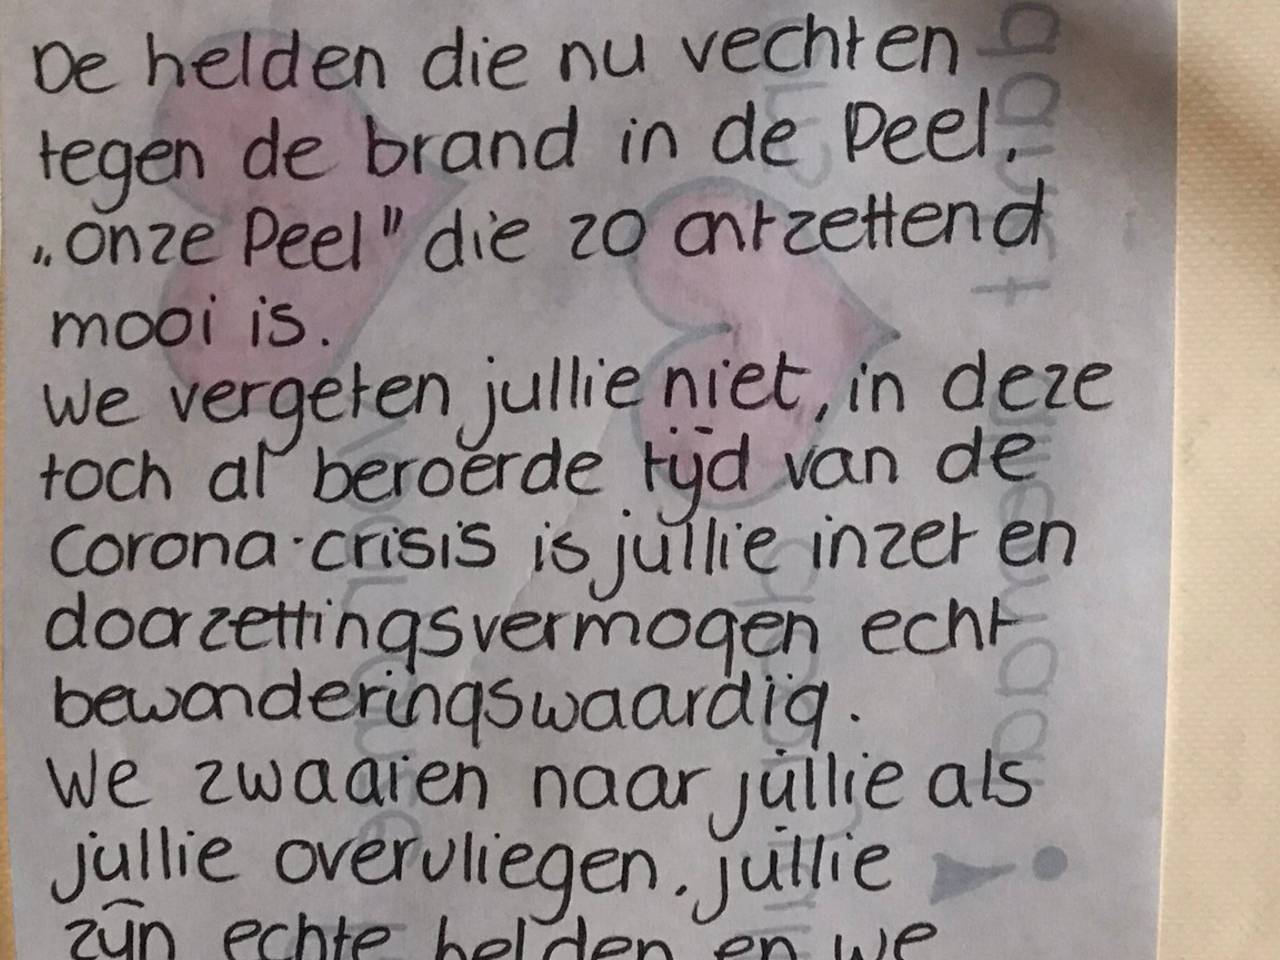 De helden die nu vechten
tegen de brand in de Peel.
„onze Peel" die zo ontzettend
mooi is.
We vergeten jullie niet, in deze
toch al beroerde tijd van de
Corona-crisis is jullie inzet en
doorzettingsvermogen echt
bewonderingswaardig.
We zwaaien naar jullie als
jullie overvliegen. jullie
zijn echte helden en we